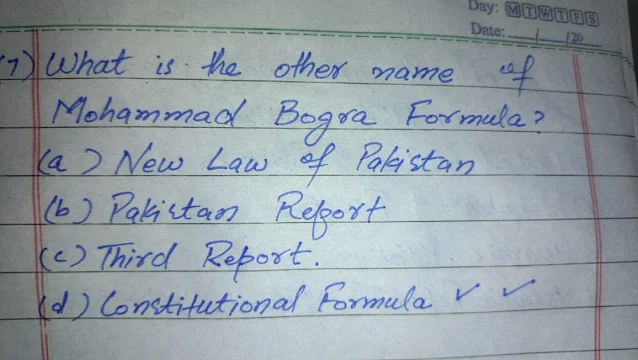 Day: M T W T F S
Date: __/__/20__
7) What is the other name of
Mohammad Bogra Formula?
(a) New Law of Pakistan
(b) Pakistan Report
(c) Third Report.
(d) Constitutional Formula ✓ ✓